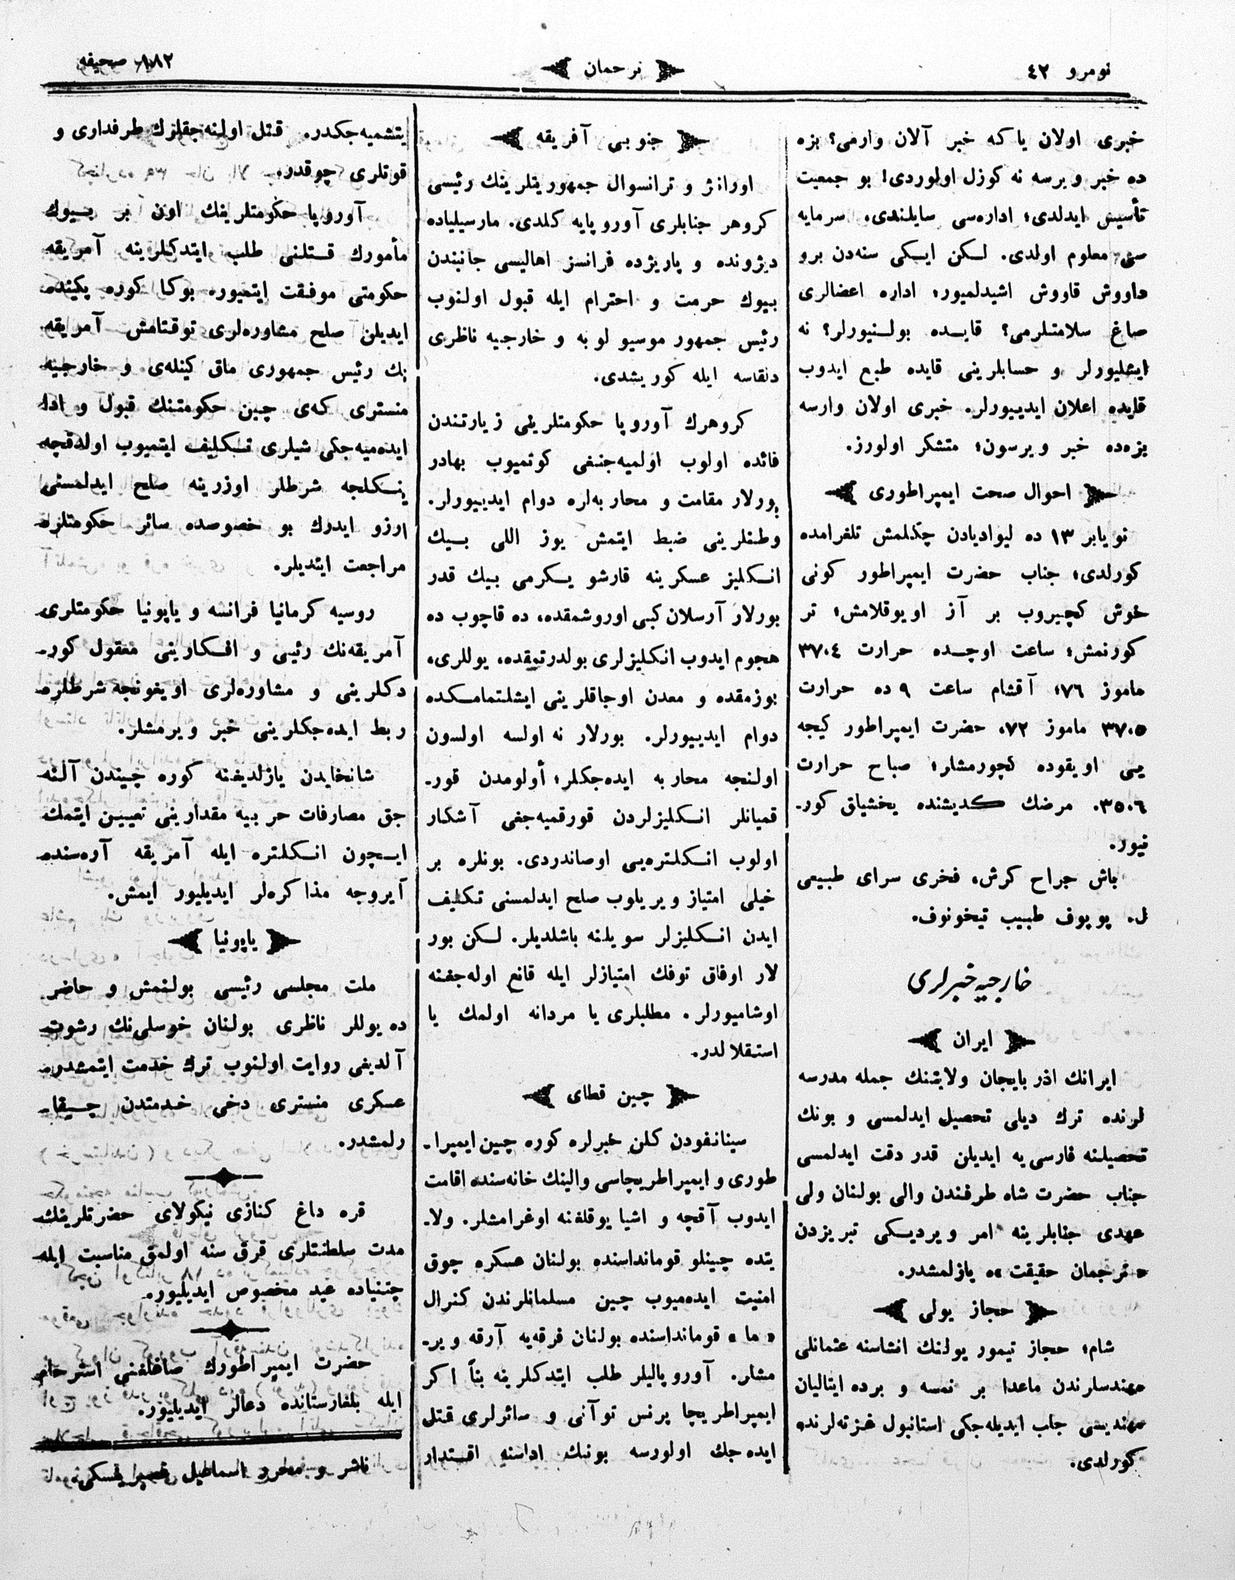 نومرو ٤٢
ترجمان
١٨٢ صحيفه
خبری اولان ياكه خبر آلان وارمی؟ بزه
ده خبر ويرسه نه كوزل اولوردی! بو جمعيت
تأسيس ايدلدی؛ اداره‌سی سايلندی. سرمايه
سی معلوم اولدی. لكن ايكی سنه‌دن برو
داووش قاووش اشيدلميور؛ اداره اعضالری
صاغ سلامتلرمی؟ قايده بولنيورلر؟ نه
ايشليورلر و حسابلرينی قايده طبع ايدوب
قايده اعلان ايدييورلر. خبری اولان وارسه
بزه‌ده خبر ويرسون؛ متشكر اولورز.
احوال صحت ايمپراطوری
نويابر ١٣ ده ليواديادن چكلمش تلغرامده
كورلدی؛ جناب حضرت ايمپراطور كونی
خوش كچيروب بر آز اويوقلامش؛ تر
كورنمش؛ ساعت اوچده حرارت ٣٧٠٤
ماموز ٧٦؛ آقشام ساعت ٩ ده حرارت
٣٧٠٥ ماموز ٧٢، حضرت ايمپراطور كيجه
يی اويقوده كچورمشلر؛ صباح حرارت
٣٥٠٦. مرضك كديشنده يخشيلق كور-
نيور.
باش جراح كرش، فخری سرای طبيبی
ل. پوپوف طبيب تيخونوف.
خارجيه خبرلری
ايران
ايرانك اذربايجان ولايتنك جمله مدرسه
لرنده ترك ديلی تحصيل ايدلمسی و بونك
تحصيلنه فارسی‌يه ايديلن قدر دقت ايدلمسی
جناب حضرت شاه طرفندن والی بولنان ولی
عهدی جنابلرينه امر ويرديكی تبريزدن
«ترجمان حقيقت»ه يازلمشدر.
حجاز يولی
شام؛ حجاز تيمور يولنك انشاسنه عثمانلی
مهندسلرندن ماعدا بر نمسه و برده ايتاليان
مهنديسی جلب ايديله‌جكی استانبول غزته‌لرنده
كورلدی.
جنوبی آفريقه
اورانژ و ترانسوال جمهوريتلرينك رئيسی
كروهر جنابلری آوروپايه كلدی. مارسيلياده
ديژونده و پاريژده فرانسز اهاليسی جانبندن
بيوك حرمت و احترام ايله قبول اولنوب
رئيس جمهور موسيو لوبه و خارجيه ناظری
دلقاسه ايله كوريشدی.
كروهرك آوروپا حكومتلرينی زيارتندن
فائده اولوب اولميه‌جنغی كوتميوب بهادر
بورلار مقامت و محاربه‌لره دوام ايدييورلر.
وطنلرينی ضبط ايتمش يوز اللی بيك
انكليز عسكرينه قارشو يكرمی بيك قدر
بورلار آرسلان كبی اوروشمقده، ده قاچوب ده
هجوم ايدوب انكليزلری بولدرتيقده، يوللری،
بوزمقده و معدن اوجاقلرينی ايشلتمامكده
دوام ايدييورلر. بورلار نه اولسه اولسون
اولنجه محاربه ايده‌جكلر؛ أولومدن قور-
قميانلر انكليزلردن قورقميه‌جغی آشكار
اولوب انكلتره‌يی اوصاندردی. بونلره بر
خيلی امتياز ويريلوب صلح ايدلمسنی تكليف
ايدن انكليزلر سويلنه باشلديلر. لكن بور
لار اوفاق توفك امتيازلر ايله قانع اوله‌جغنه
اوشاميورلر. مطلبلری يا مردانه اولمك يا
استقلالدر.
چين قطای
سينانفودن كلن خبرلره كوره چين ايمپرا-
طوری و ايمپراطريچاسی والينك خانه‌سنده اقامت
ايدوب آقچه و اشيا يوقلغنه اوغرامشلر. ولا-
يتده چينلو قومانداسنده بولنان عسكره چوق
امنيت ايده‌ميوب چين مسلمانلرندن كنرال
«ما» قومانداسنده بولنان فرقه‌يه آرقه وير-
مشلر. آوروپاليلر طلب ايتدكلرينه بناً اكر
ايمپراطريچا پرنس توآنی و سائرلری قتل
ايده‌جك اولورسه بونك اداسنه اقتدار
يتشميه‌جكدر. قتل اولنه‌جقلرك طرفداری و
قوتلری چوقدر.
آوروپا حكومتلرينك اون بر بيوك
مأمورك قتلنی طلب ايتدكلرينه آمريقه
حكومتی موفقت ايتميور. بوكا كوره پكينده
ايديلن صلح مشاوره‌لری توقتامش آمريقه
نك رئيس جمهوری ماق كينله‌ی و خارجيه
منستری كه‌ی چين حكومتنك قبول و ادا
ايده‌ميه‌جكی شيلری تكليف ايتميوب اولدقچه
يكلجه شرطلر اوزرينه صلح ايدلمسنی
ارزو ايدرك بو خصوصده سائر حكومتلره
مراجعت ايتديلر.
روسيه كرمانيا فرانسه و ياپونيا حكومتلری
آمريقه‌نك رئيی و افكارينی معقول كور-
دكلرينی و مشاوره‌لری اويغونجه شرطلره
ربط ايده‌جكلرينی خبر ويرمشلر.
شانخايدن يازلديغنه كوره چيندن آلنه
جق مصارفات حربيه مقدارينی تعيين ايتمك
ايچون انكلتره ايله آمريقه آره‌سنده
آيروجه مذاكره‌لر ايديليور ايمش.
ياپونيا
ملت مجلسی رئيسی بولنمش و حاضر
ده يوللر ناظری بولنان خوسلی‌نك رشوت
آلديغی روايت اولنوب ترك خدمت ايتمشدر.
عسكری منستری دخی خدمتدن چيقا-
رلمشدر.
قره داغ كنازی نيكولای حضرتلرينك
مدت سلطنتلری قرق سنه اولمق مناسبت ايله
چتنياده عيد مخصوص ايديليور.
حضرت ايمپراطورك صاغلغنی استرحام
ايله بلغارستانده دعالر ايديليور.
ناشر و محرر اسماعيل غصپرينسكی.